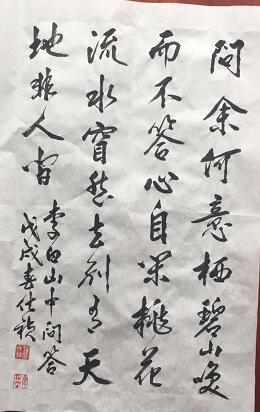 问余何意栖碧山咲
而不答心自闲桃花
流水窅然去别有天
地非人间
李白山中问答
戊戌春仕